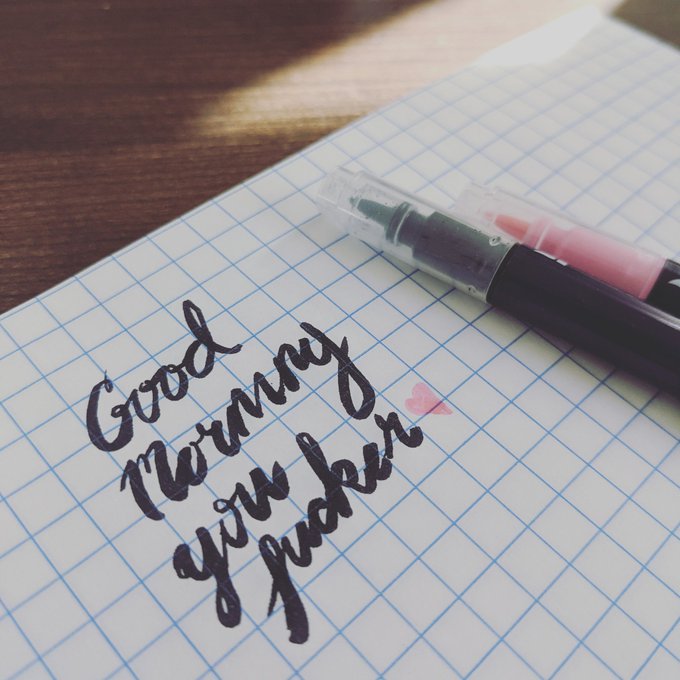 Good
Morning
you
fucker